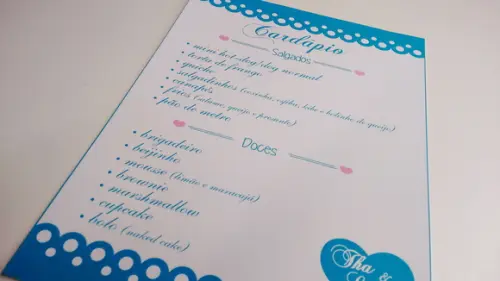 Cardápio
Salgados
• mini hot-dog/dog normal
• torta de frango
• quiche
• salgadinhos (coxinha, esfiha, kibe e bolinho de queijo)
• canapés
• frios (salame, queijo e presunto)
• pão de metro
Doces
• brigadeiro
• beijinho
• mousse (limão e maracujá)
• brownie
• marshmallow
• cupcake
• bolo (naked cake)
Tha &